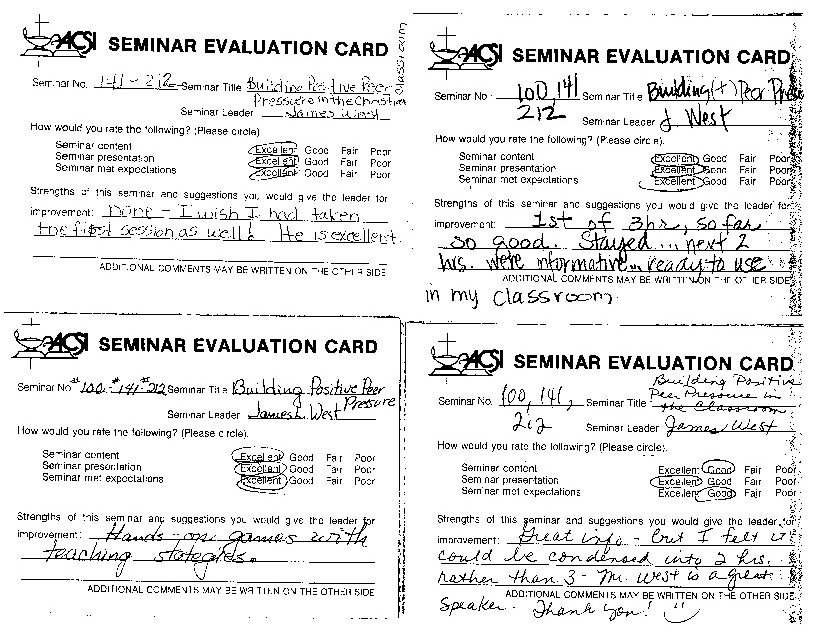 ACSI SEMINAR EVALUATION CARD
Seminar No. 141-212 Seminar Title Building Positive Peer
Pressure in the Christian
Classroom
Seminar Leader James West
How would you rate the following? (Please circle)
Seminar content Excellent Good Fair Poor
Seminar presentation Excellent Good Fair Poor
Seminar met expectations Excellent Good Fair Poor
Strengths of this seminar and suggestions you would give the leader for
improvement: None - I wish I had taken
the first session as well! He is excellent
ADDITIONAL COMMENTS MAY BE WRITTEN ON THE OTHER SIDE
ACSI SEMINAR EVALUATION CARD
Seminar No. 100, 141 Seminar Title Building (+) Peer Press
212 Seminar Leader J. West
How would you rate the following? (Please circle).
Seminar content Excellent Good Fair Poor
Seminar presentation Excellent Good Fair Poor
Seminar met expectations Excellent Good Fair Poor
Strengths of this seminar and suggestions you would give the leader for
improvement: 1st of 3 hr, so far
so good. Stayed... next 2
hrs. were informative... ready to use
ADDITIONAL COMMENTS MAY BE WRITTEN ON THE OTHER SIDE
in my classroom.
ACSI SEMINAR EVALUATION CARD
Seminar No. #100, #141 #212 Seminar Title Building Positive Peer
Pressure
Seminar Leader James L. West
How would you rate the following? (Please circle).
Seminar content Excellent Good Fair Poor
Seminar presentation Excellent Good Fair Poor
Seminar met expectations Excellent Good Fair Poor
Strengths of this seminar and suggestions you would give the leader for
improvement: Hands-on games with
teaching
ADDITIONAL COMMENTS MAY BE WRITTEN ON THE OTHER SIDE
ACSI SEMINAR EVALUATION CARD
Building Positive
Seminar No. 100, 141, Seminar Title Peer Pressure in
the Classroom
212 Seminar Leader James West
How would you rate the following? (Please circle).
Seminar content Excellent Good Fair Poor
Seminar presentation Excellent Good Fair Poor
Seminar met expectations Excellent Good Fair Poor
Strengths of this seminar and suggestions you would give the leader for
improvement: Great info - but I felt it
could be condensed into 2 hrs.
rather than 3 - Mr. West is a great
ADDITIONAL COMMENTS MAY BE WRITTEN ON THE OTHER SIDE
Speaker. Thank you!